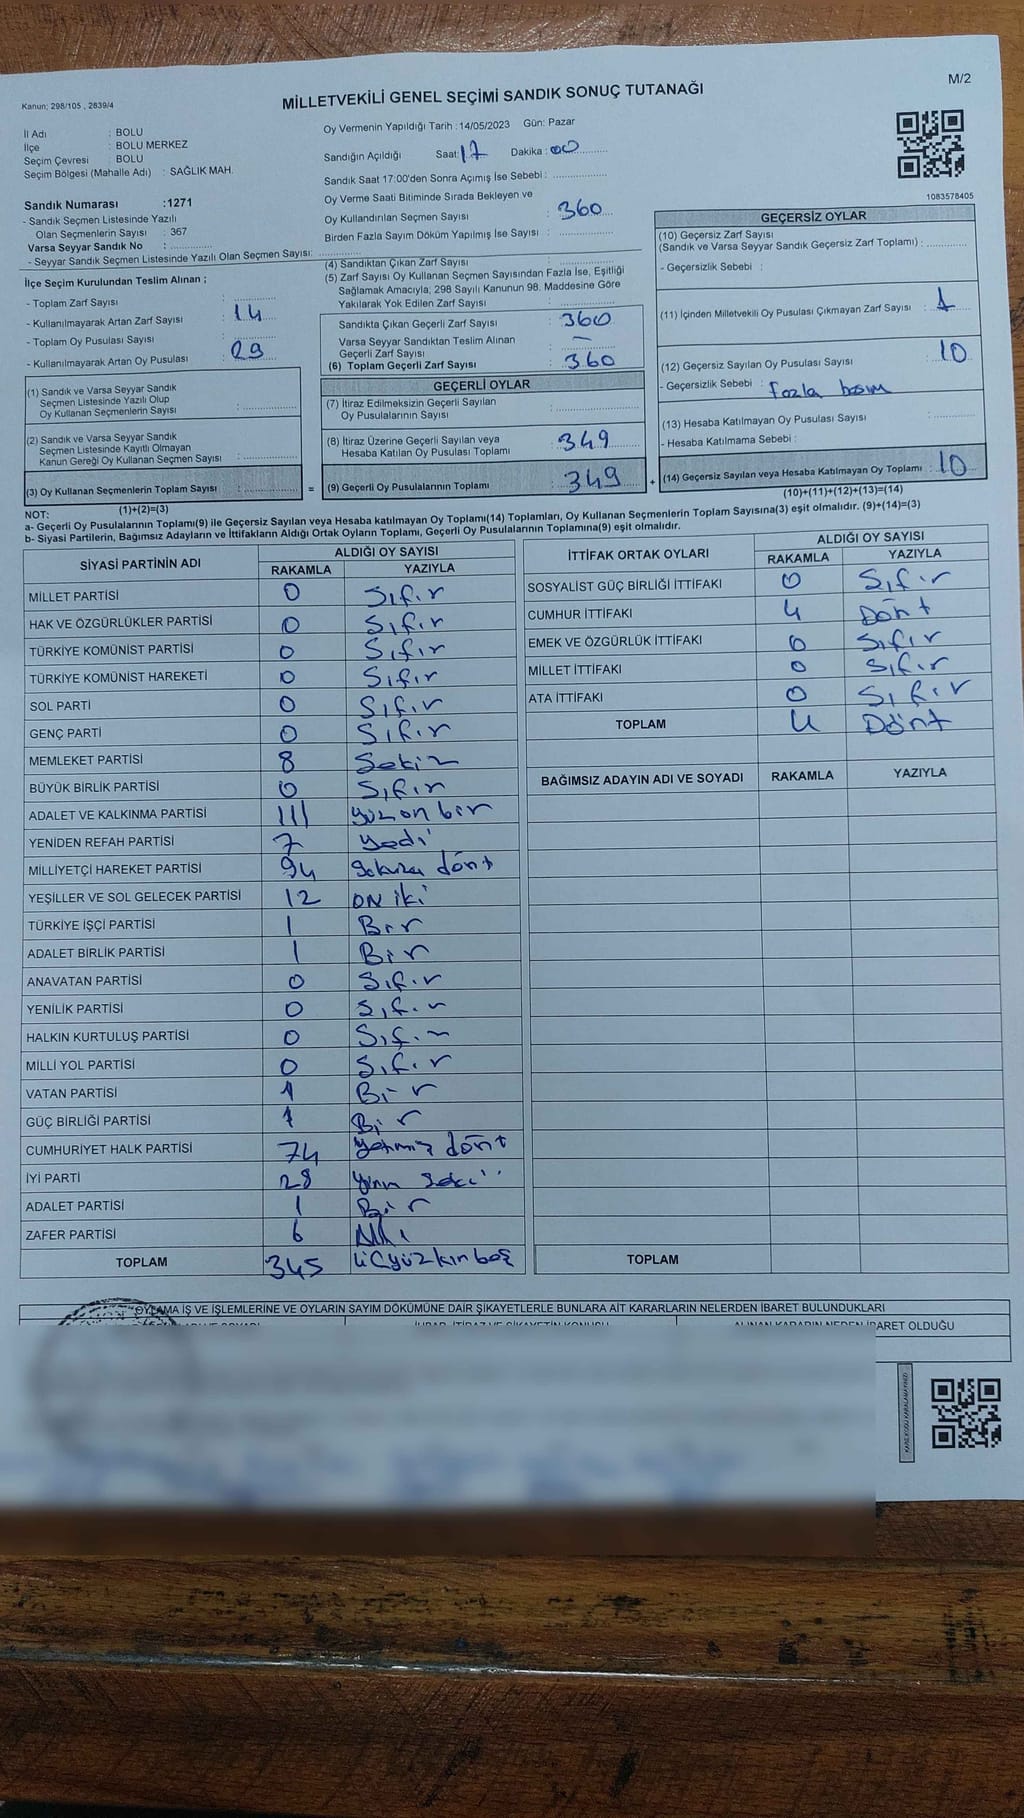 M/2
Kanun; 298/105 , 2839/4
MİLLETVEKİLİ GENEL SEÇİMİ SANDIK SONUÇ TUTANAĞI
İl Adı : BOLU
İlçe : BOLU MERKEZ
Seçim Çevresi : BOLU
Seçim Bölgesi (Mahalle Adı) : SAĞLIK MAH.
Sandık Numarası :1271
- Sandık Seçmen Listesinde Yazılı
Olan Seçmenlerin Sayısı : 367
Varsa Seyyar Sandık No :
- Seyyar Sandık Seçmen Listesinde Yazılı Olan Seçmen Sayısı:
Oy Vermenin Yapıldığı Tarih :14/05/2023 Gün: Pazar
Sandığın Açıldığı Saat: 17 Dakika : 00
Sandık Saat 17:00'den Sonra Açımış İse Sebebi :
Oy Verme Saati Bitiminde Sırada Bekleyen ve
Oy Kullandırılan Seçmen Sayısı : 360
Birden Fazla Sayım Döküm Yapılmış İse Sayısı :
1083578405
İlçe Seçim Kurulundan Teslim Alınan ;
- Toplam Zarf Sayısı :
- Kullanılmayarak Artan Zarf Sayısı : 14
- Toplam Oy Pusulası Sayısı :
- Kullanılmayarak Artan Oy Pusulası : 29
(1) Sandık ve Varsa Seyyar Sandık
Seçmen Listesinde Yazılı Olup
Oy Kullanan Seçmenlerin Sayısı :
(2) Sandık ve Varsa Seyyar Sandık
Seçmen Listesinde Kayıtlı Olmayan
Kanun Gereği Oy Kullanan Seçmen Sayısı :
(3) Oy Kullanan Seçmenlerin Toplam Sayısı :
(1)+(2)=(3)
(4) Sandıktan Çıkan Zarf Sayısı :
(5) Zarf Sayısı Oy Kullanan Seçmen Sayısından Fazla İse, Eşitliği
Sağlamak Amacıyla; 298 Sayılı Kanunun 98. Maddesine Göre
Yakılarak Yok Edilen Zarf Sayısı :
Sandıkta Çıkan Geçerli Zarf Sayısı : 360
Varsa Seyyar Sandıktan Teslim Alınan
Geçerli Zarf Sayısı : –
(6) Toplam Geçerli Zarf Sayısı : 360
GEÇERLİ OYLAR
(7) İtiraz Edilmeksizin Geçerli Sayılan
Oy Pusulalarının Sayısı :
(8) İtiraz Üzerine Geçerli Sayılan veya
Hesaba Katılan Oy Pusulası Toplamı : 349
= (9) Geçerli Oy Pusulalarının Toplamı : 349 +
GEÇERSİZ OYLAR
(10) Geçersiz Zarf Sayısı
(Sandık ve Varsa Seyyar Sandık Geçersiz Zarf Toplamı) :
- Geçersizlik Sebebi :
(11) İçinden Milletvekili Oy Pusulası Çıkmayan Zarf Sayısı : 1
(12) Geçersiz Sayılan Oy Pusulası Sayısı : 10
- Geçersizlik Sebebi : fazla basım
(13) Hesaba Katılmayan Oy Pusulası Sayısı :
- Hesaba Katılmama Sebebi :
(14) Geçersiz Sayılan veya Hesaba Katılmayan Oy Toplamı : 10
(10)+(11)+(12)+(13)=(14)
NOT:
a- Geçerli Oy Pusulalarının Toplamı(9) ile Geçersiz Sayılan veya Hesaba katılmayan Oy Toplamı(14) Toplamları, Oy Kullanan Seçmenlerin Toplam Sayısına(3) eşit olmalıdır. (9)+(14)=(3)
b- Siyasi Partilerin, Bağımsız Adayların ve İttifakların Aldığı Ortak Oyların Toplamı, Geçerli Oy Pusulalarının Toplamına(9) eşit olmalıdır.
SİYASİ PARTİNİN ADI ALDIĞI OY SAYISI
RAKAMLA YAZIYLA
MİLLET PARTİSİ 0 Sıfır
HAK VE ÖZGÜRLÜKLER PARTİSİ 0 Sıfır
TÜRKİYE KOMÜNİST PARTİSİ 0 Sıfır
TÜRKİYE KOMÜNİST HAREKETİ 0 Sıfır
SOL PARTİ 0 Sıfır
GENÇ PARTİ 0 Sıfır
MEMLEKET PARTİSİ 8 Sekiz
BÜYÜK BİRLİK PARTİSİ 0 Sıfır
ADALET VE KALKINMA PARTİSİ 111 yüz on bir
YENİDEN REFAH PARTİSİ 7 yedi
MİLLİYETÇİ HAREKET PARTİSİ 94 dört
YEŞİLLER VE SOL GELECEK PARTİSİ 12 on iki
TÜRKİYE İŞÇİ PARTİSİ 1 Bir
ADALET BİRLİK PARTİSİ 1 Bir
ANAVATAN PARTİSİ 0 Sıfır
YENİLİK PARTİSİ 0 Sıfır
HALKIN KURTULUŞ PARTİSİ 0 Sıfır
MİLLİ YOL PARTİSİ 0 Sıfır
VATAN PARTİSİ 1 Bir
GÜÇ BİRLİĞİ PARTİSİ 1 Bir
CUMHURİYET HALK PARTİSİ 74 yetmiş dört
İYİ PARTİ 28
ADALET PARTİSİ 1 Bir
ZAFER PARTİSİ 6 Altı
TOPLAM 345 üçyüzkırkbeş
İTTİFAK ORTAK OYLARI ALDIĞI OY SAYISI
RAKAMLA YAZIYLA
SOSYALİST GÜÇ BİRLİĞİ İTTİFAKI 0 Sıfır
CUMHUR İTTİFAKI 4 Dört
EMEK VE ÖZGÜRLÜK İTTİFAKI 0 Sıfır
MİLLET İTTİFAKI 0 Sıfır
ATA İTTİFAKI 0 Sıfır
TOPLAM 4 Dört
BAĞIMSIZ ADAYIN ADI VE SOYADI RAKAMLA YAZIYLA
TOPLAM
OYLAMA İŞ VE İŞLEMLERİNE VE OYLARIN SAYIM DÖKÜMÜNE DAİR ŞİKAYETLERLE BUNLARA AİT KARARLARIN NELERDEN İBARET BULUNDUKLARI
ALINAN KARARIN NEDEN İBARET OLDUĞU